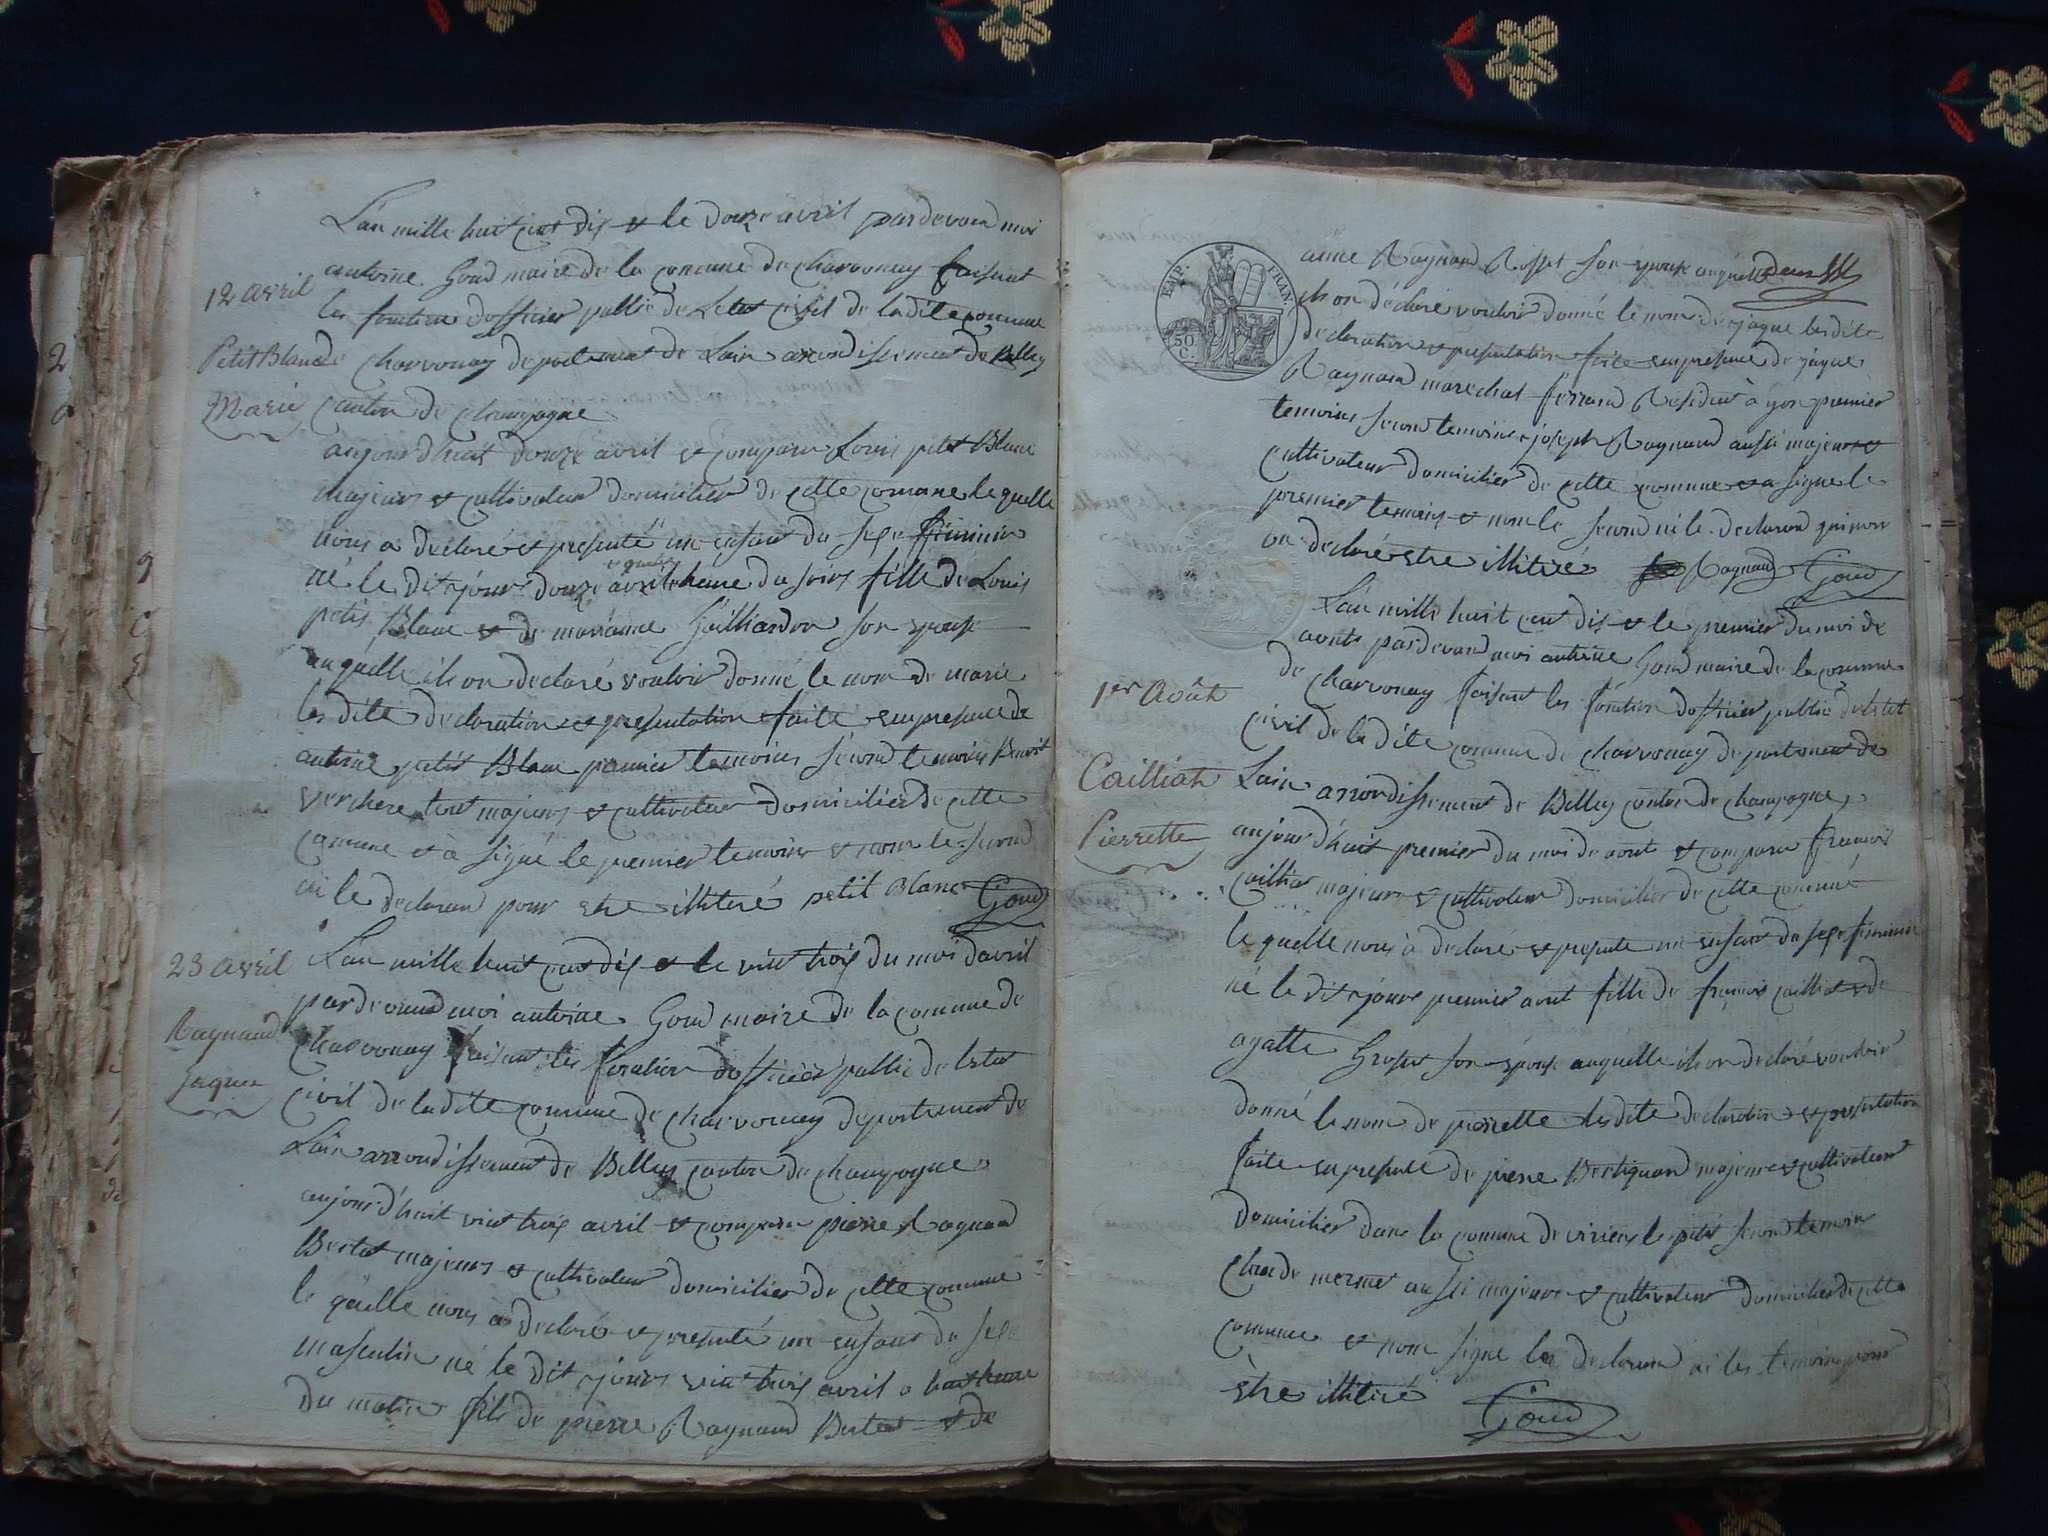 L'an mille huit cent dix et le douze avril pardevand moi
antoine Goud maire de la comune de charvonay faisant
12 avril
les fonction dofficier public de letat civil de la dite comune
Petit Blanc de charvonay departement de Lain arondissement de Belley
Marie canton de champagne
aujourd'huit douze avril et comparu Louis petit Blanc
majeurs et cultivateur domicilier de cette comune le quelle
nous a declaré et presenté un enfant du sexe feminin
né le dit jour douze avril heure du soirs fille de Louis
petit Blanc et de marianne Gailliardon son epouse
auquelle ils on declaré vouloir donné le nom de marie
les dite declaration et presentation faite en presence de
antoine petit Blanc premier temoins second temoins Benoit
verchere tout majeurs et cultivateur domicilier de cette
comune et a signé le premier temoins et nom le second
ni le declarand pour etre illiteré petit Blanc Goud
23 avril L'an mille huit cent dix et le vint trois du moi davril
pardevand moi antoine Goud maire de la comune de
Raynaud charvonay faisant les fonction dofficier public de letat
Jaques civil de la dite comune de charvonay departement de
Lain arrondissement de Belley canton de champagne
aujourd'huit vint trois avril et comparu pierre Raynaud
Bertet majeurs et cultivateur domicilier de cette comune
le quelle nous a declaré et presenté un enfant du sexe
masculin né le dit jours vint trois avril a huit heure
du matin fils de pierre Raynaud Bertet et de
EMP. FRAN.
50 C.
anne Raynaud Rosset son epouse auquelle
ils on declaré vouloir donné le nom de jaque les dite
declaration et presentation faite en presence de jaque
Raynaud marechal ferrand Residant à yon premier
temoins second temoins joseph Raynaud aussi majeurs et
cultivateur domicilier de cette comune et a signe le
premier temoins et nom le second ni le declarand qui non
on declaré etre illiteré Raynaud Goud
L'an mille huit cent dix et le premier du moi de
aout pardevand moi antoine Goud maire de la comune
1er Août
de charvonay faisant les fonction dofficier public de letat
civil de la dite comune de charvonay departement de
Cailliat Lain arrondissement de Belley canton de champagne
Pierrette aujourd'huit premier du moi de aout et comparu francois
cailliat majeurs et cultivateur domicilier de cette comune
le quelle nous à declaré et presente un enfant du sexe feminin
né le dit jour premier aout fille de francois cailliat et de
agatte Grosset son epouse auquelle ils on declaré vouloir
donné le nom de pierrette les dite declaration et presentation
faite en presence de pierre Bertignon majeurs et cultivateur
domicilier dans la comune de virieu le petit second temoin
claude mermet aussi majeurs et cultivateur domicilier de cette
comune et nom signe les declarand ni les temoins pour
etre illiteré Goud